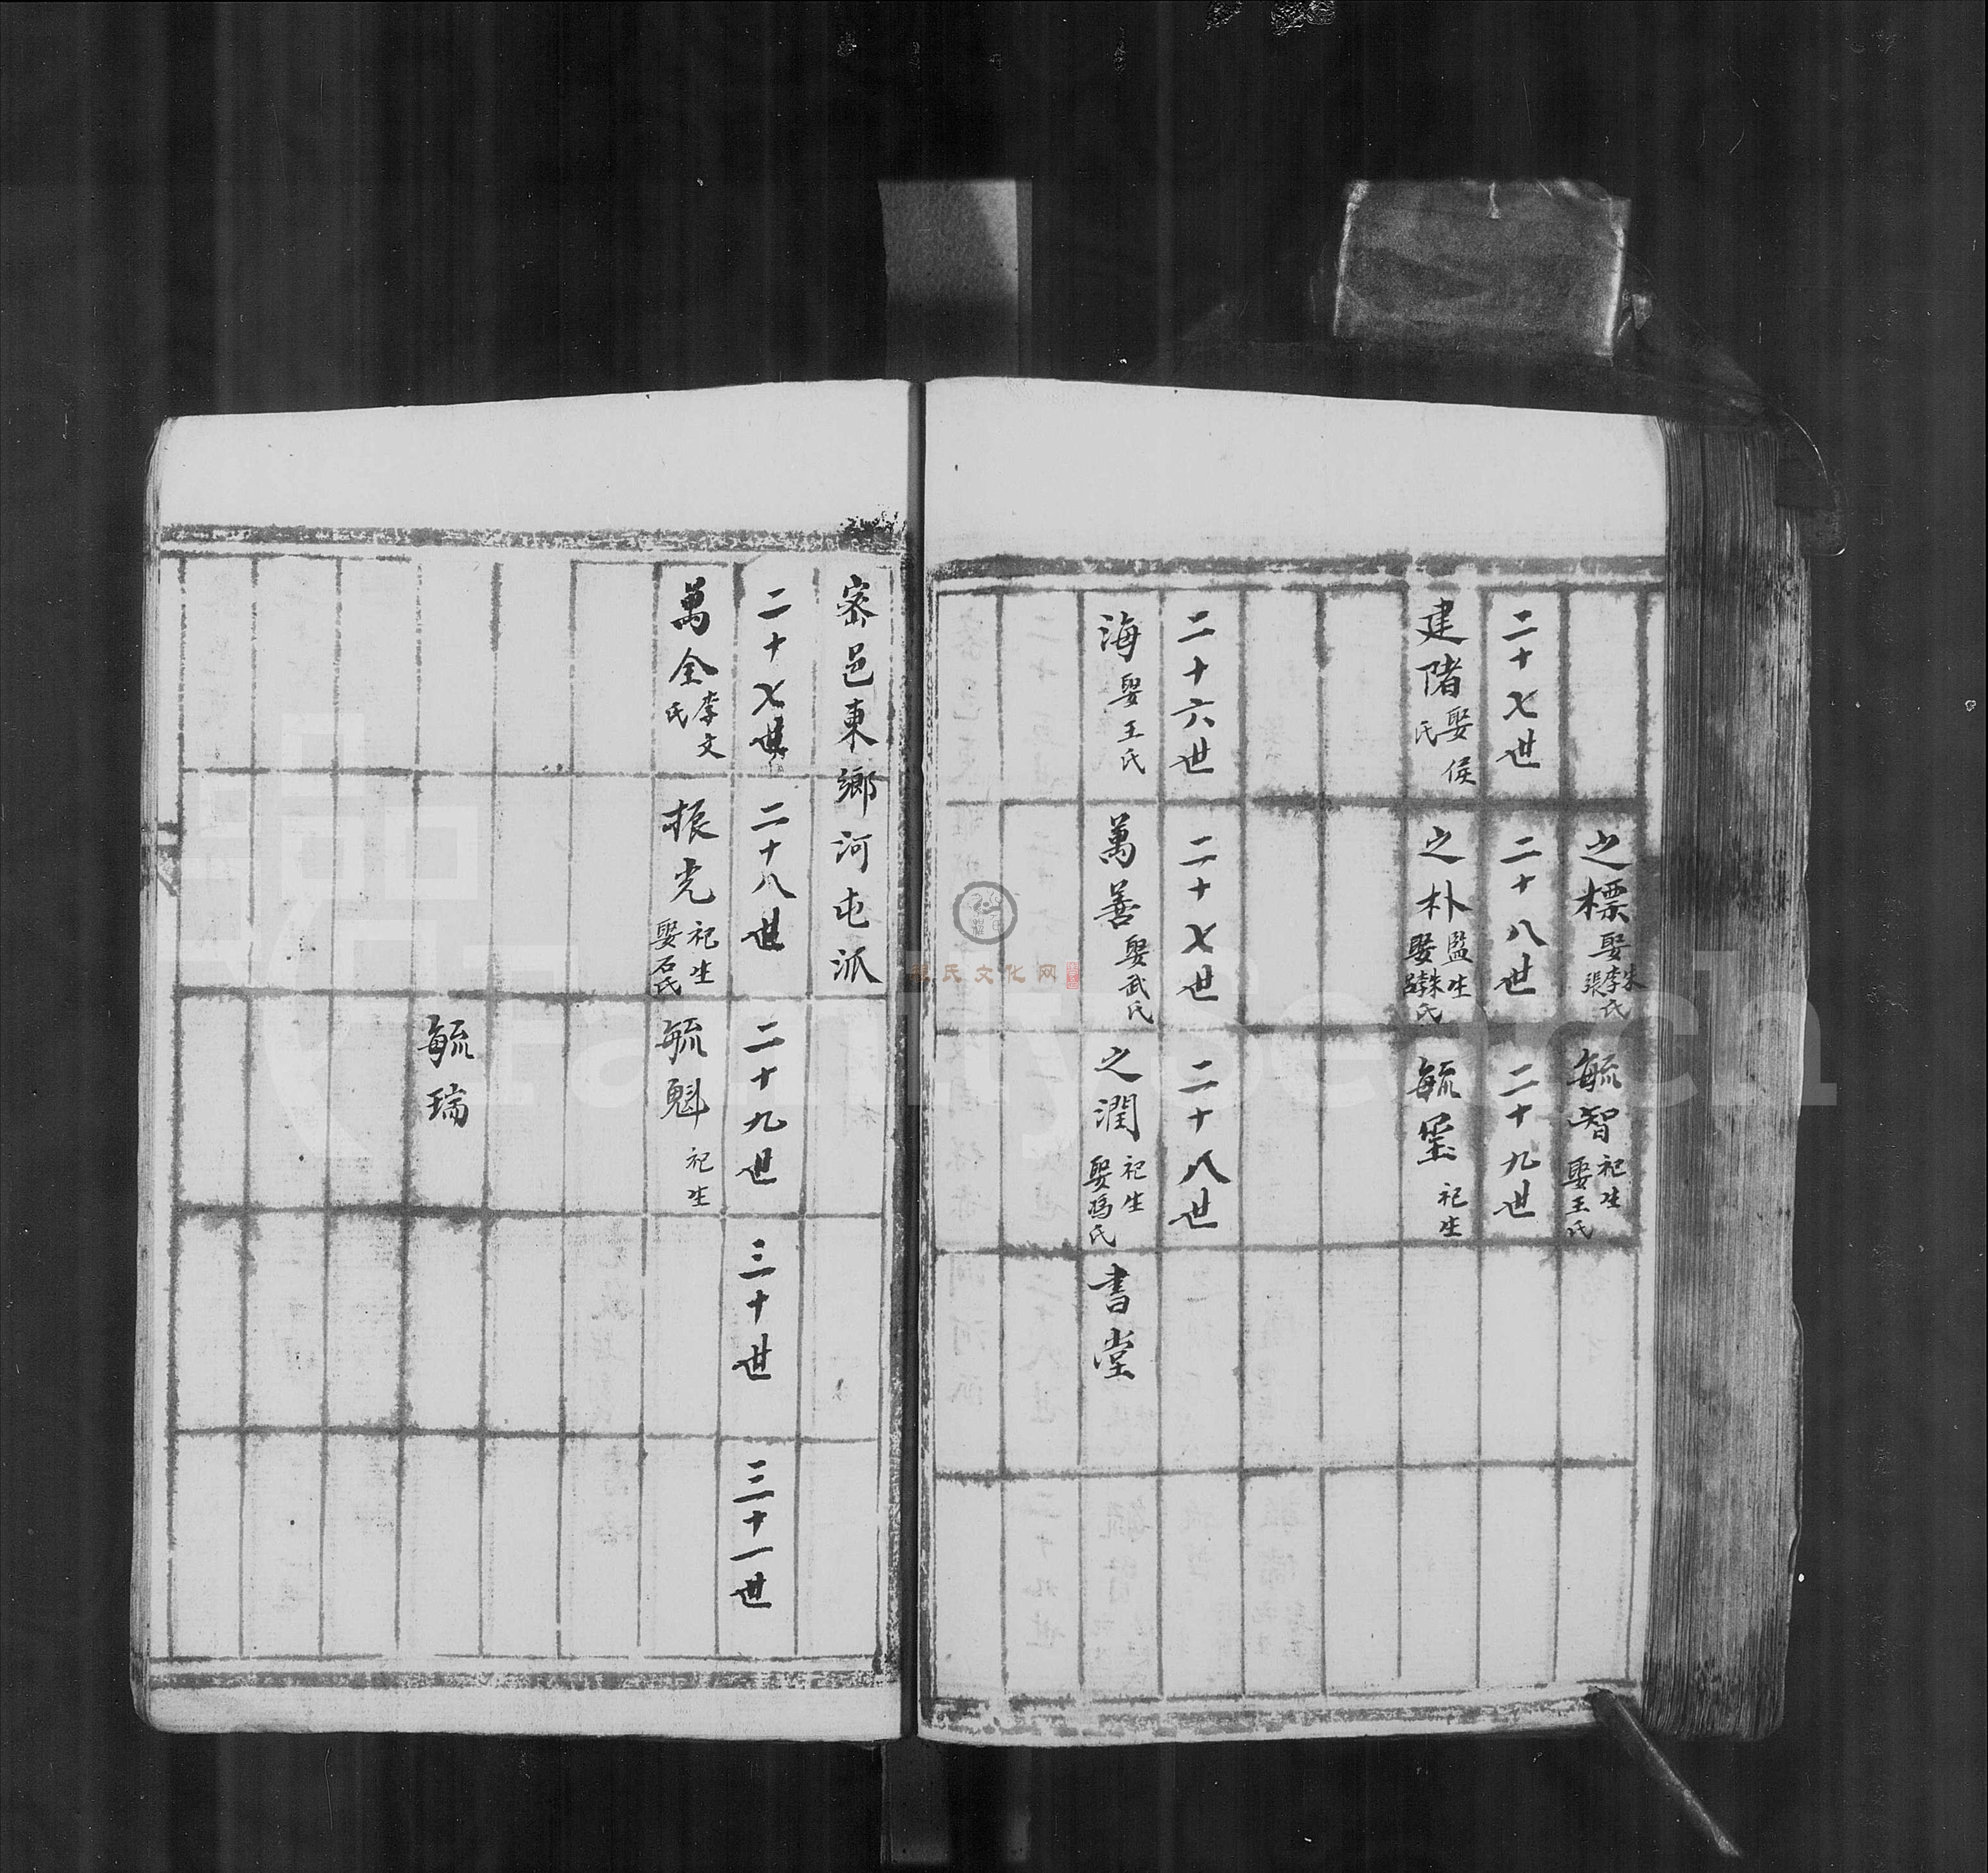 之標 娶朱李張氏
毓智 祀生 娶王氏
二十七世 二十八世 二十九世
建陼 娶侯氏
之朴 監生 娶朱李氏
毓璽 祀生
二十六世 二十七世 二十八世
海 娶王氏
萬善 娶武氏
之潤 祀生 娶馮氏
書堂
宻邑東鄉河屯派
二十七世 二十八世 二十九世 三十世 三十一世
萬全 李文氏
振堯 祀生 娶石氏
毓魁 祀生
毓瑞
氏文化网
FamilySearch